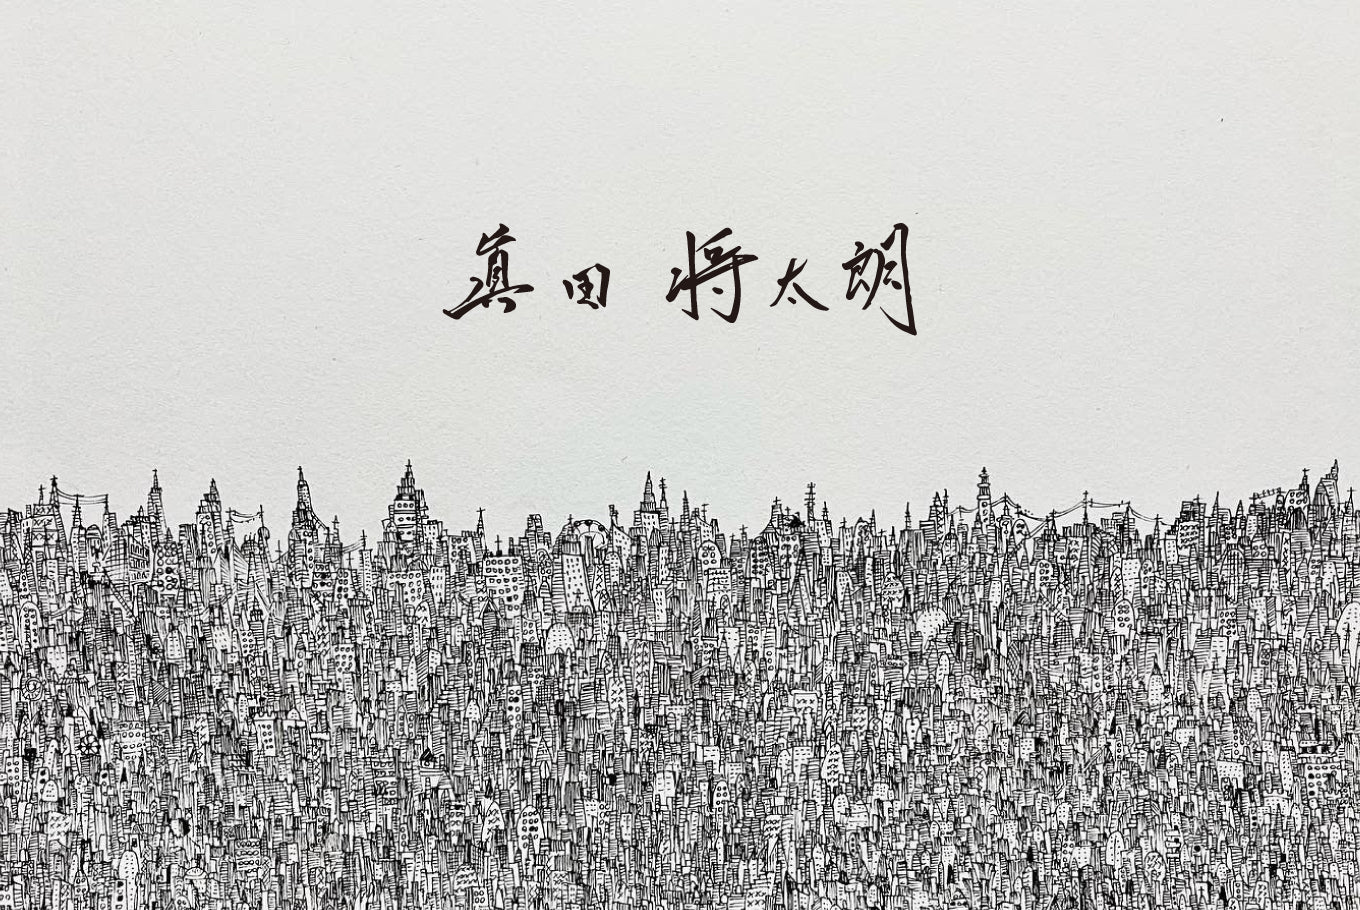 真田 将太朗